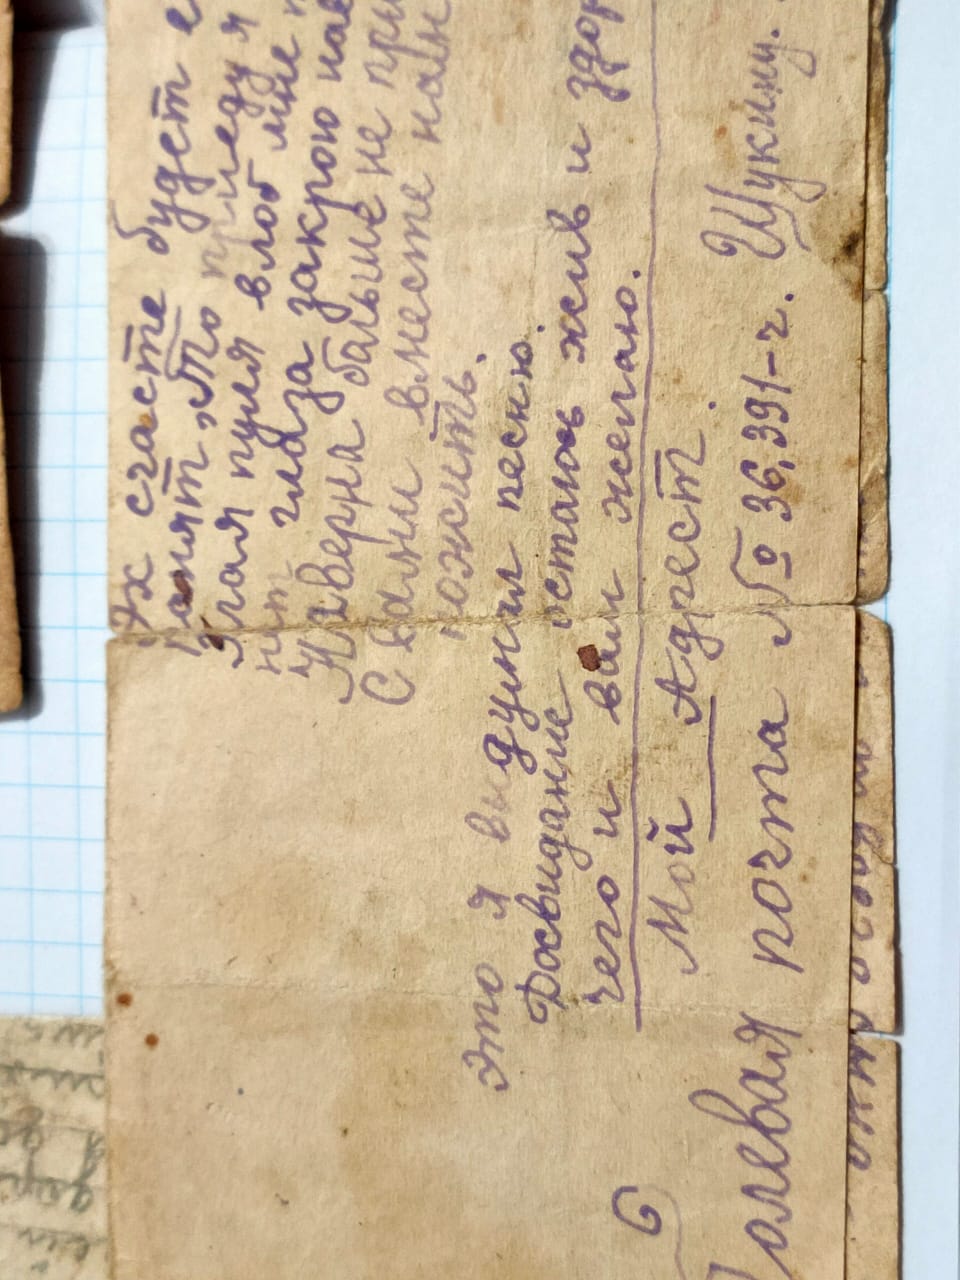 Эх счасте будет е
понят, То приеду я
Злая пуля влоб мне
нет глаза закрою нав
Наверна бальше не при
С вами вместе навн
пожить.
Это я выдумал песню.
Досвидание остаюсь жив и здор
чего и вам желаю.
Мой Адрест.
Полевая почта № 36,391-ч. Щукину.
6